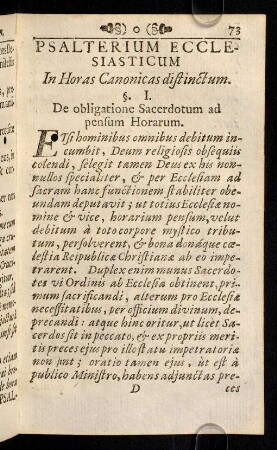 o 73
PSALTERIUM ECCLE-
SIASTICUM
In Horas Canonicas distinctum.
§. I.
De obligatione Sacerdotum ad
pensum Horarum.
ETsi hominibus omnibus debitum in-
cumbit, Deum religiosis obsequiis
colendi, selegit tamen Deus ex his non-
nullos specialiter, & per Ecclesiam ad
sacram hanc functionem stabiliter obe-
undam deputavit; ut totius Ecclesiæ no-
mine & vice, horarium pensum, velut
debitum à toto corpore mystico tribu-
tum, persolverent, & bona donáque cœ-
lestia Reipublicæ Christianæ ab eo impe-
trarent. Duplex enim munus Sacerdo-
tes vi Ordinis ab Ecclesia obtinent, pri-
mum sacrificandi, alterum pro Ecclesiæ
necessitatibus, per officium divinum, de-
precandi: atque hinc oritur, ut licet Sa-
cerdos sit in peccato, & ex propriis meri-
tis preces ejus pro illo statu impetratoriæ
non sint; oratio tamen ejus, ut est à
publico Ministro, habens adjunctas pre-
D ces